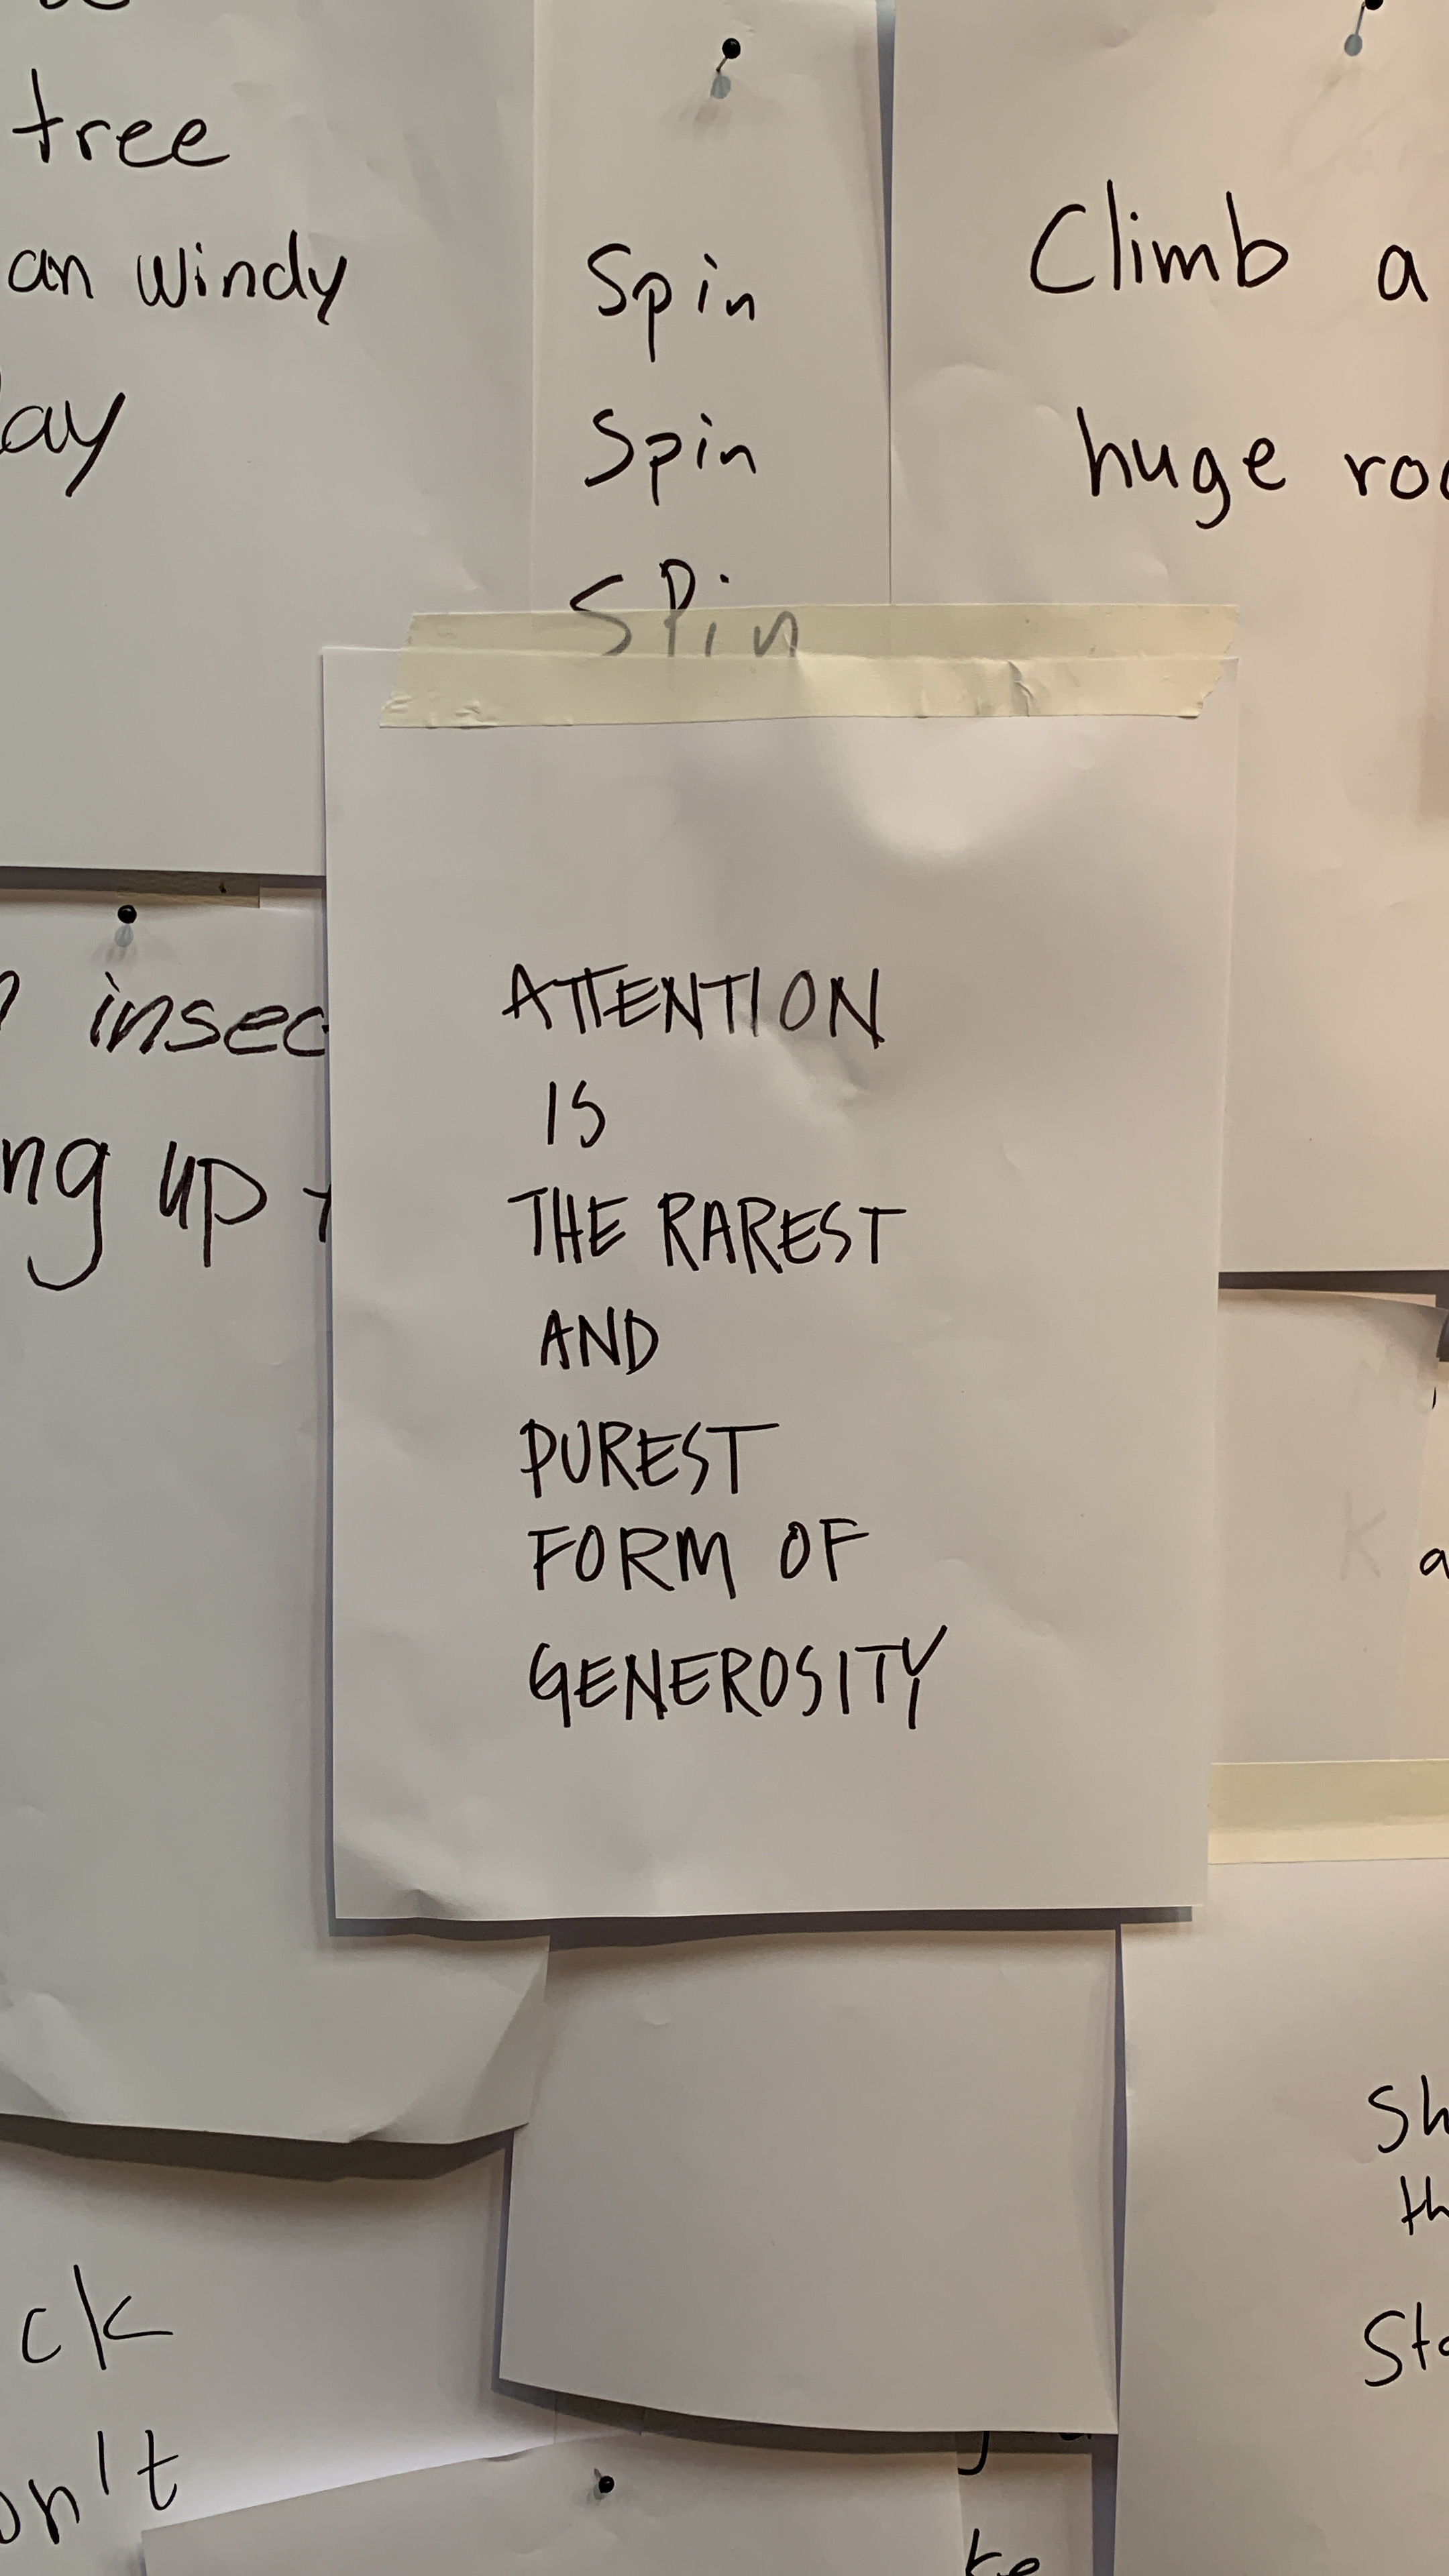 tree
an windy
Spin
Spin
SPin
Climb a
huge
insec
up
ATTENTION
IS
THE RAREST
AND
PUREST
FORM OF
GENEROSITY